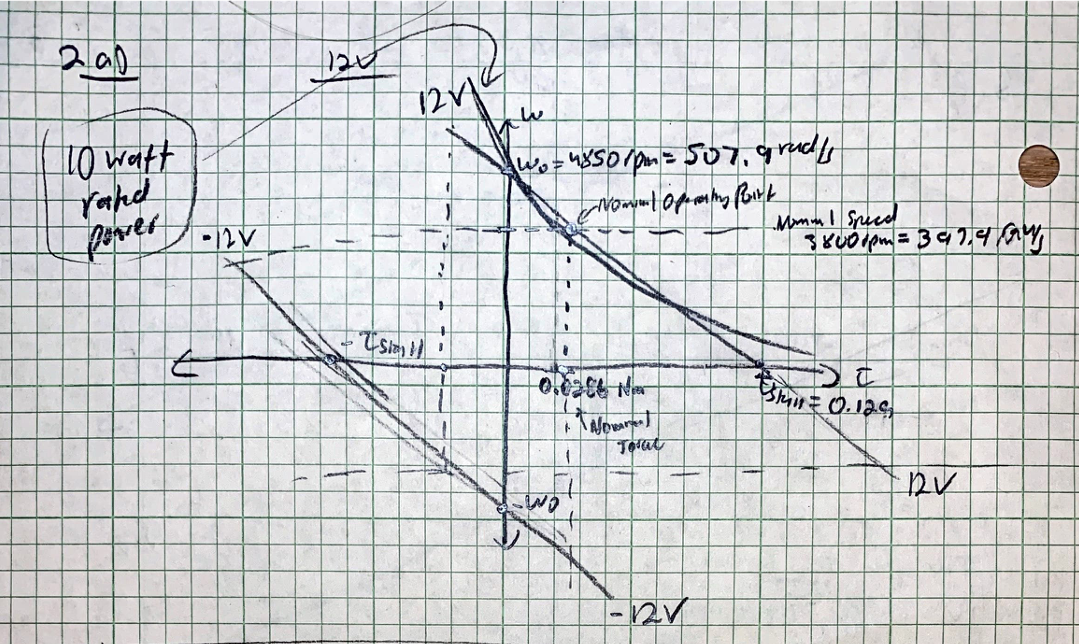 2 a)
12V
10 watt
rated
power
12V
ω
ω₀ = 4850 rpm = 507.9 rad/s
Nominal Operating Point
Nominal Speed
3800 rpm = 397.9 rad/s
-12V
-τstall
τ
0.0286 Nm
τstall = 0.129
Nominal
12V
-ω₀
-12V